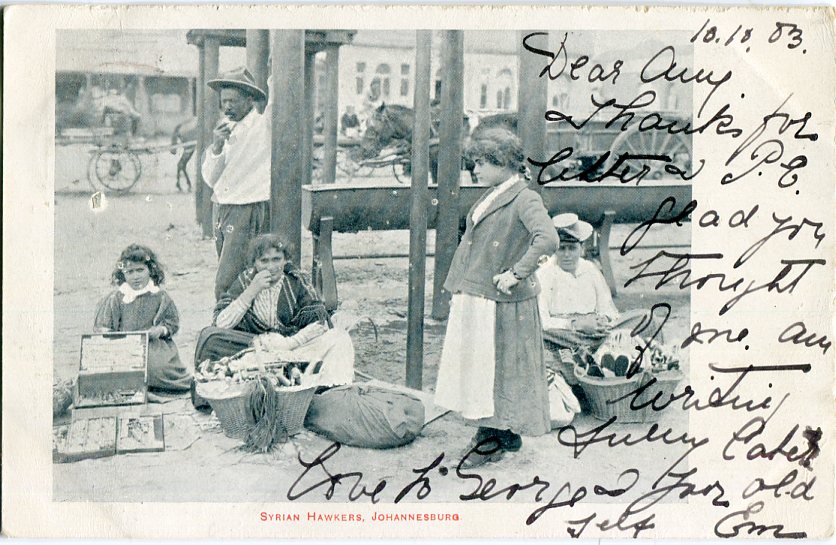 10.10.03.
Dear Amy
Thanks for
letter & P.C.
glad you
thought
of me. am
writing
fully later
Love to George & Your old
self Em
SYRIAN HAWKERS, JOHANNESBURG.